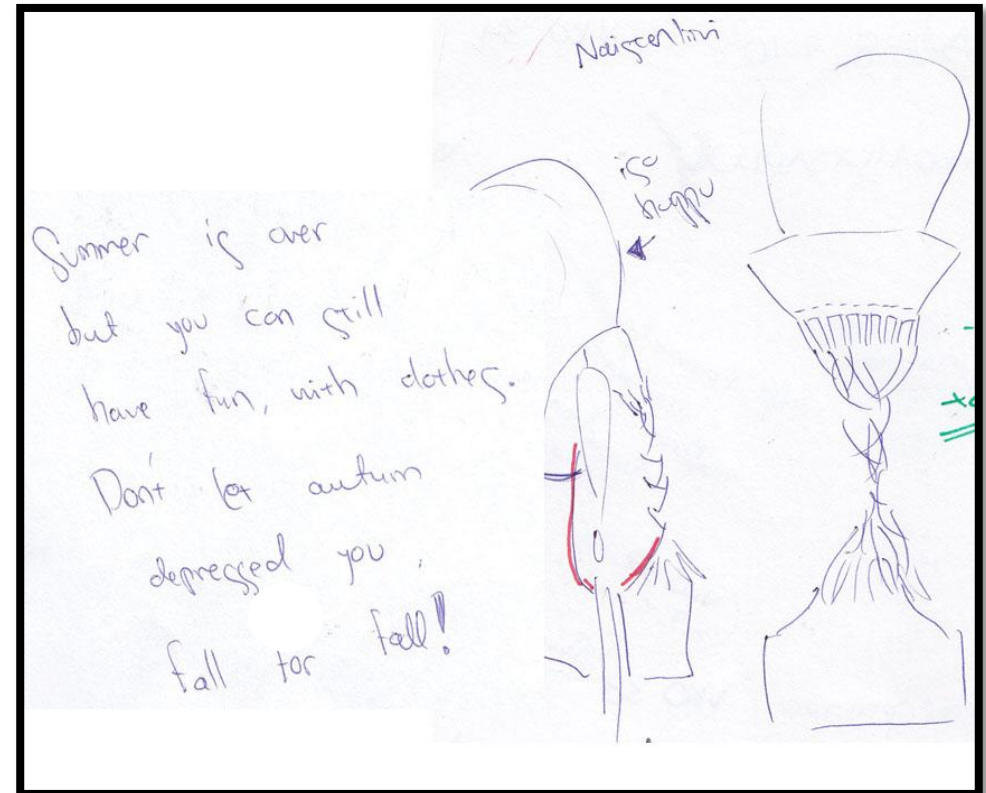 Summer is over
but you can still
have fun, with clothes.
Don't let autum
depressed you.
fall for fall!
is
happy